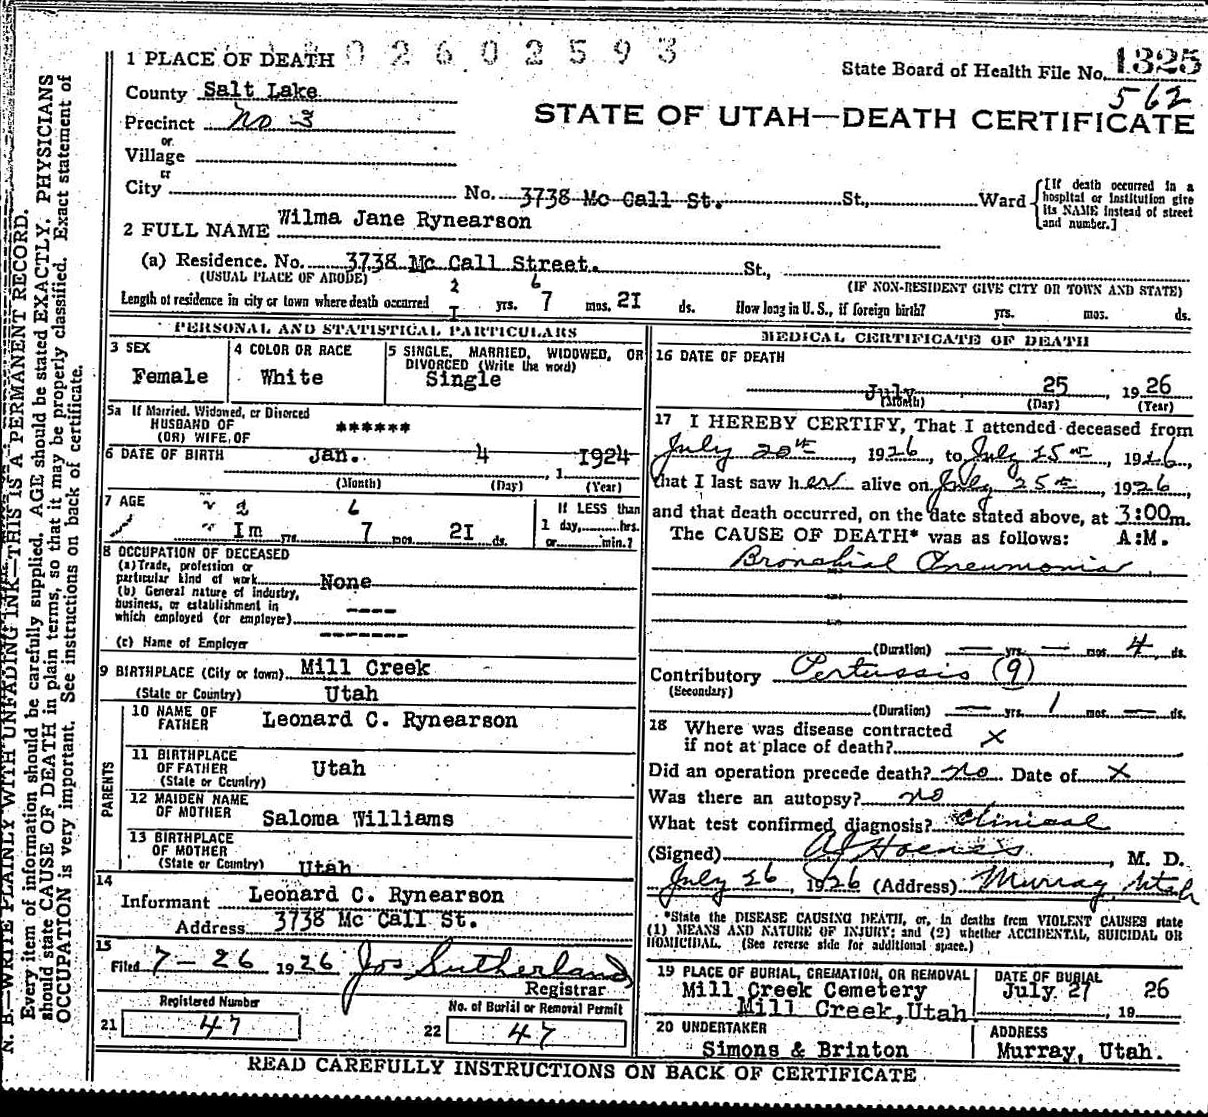 02602593
1 PLACE OF DEATH
State Board of Health File No. 1325
562
County Salt Lake
STATE OF UTAH—DEATH CERTIFICATE
Precinct No 3
or
Village
or
City No. 3738 Mc Call St. St., Ward [If death occurred in a hospital or institution give its NAME instead of street and number.]
2 FULL NAME Wilma Jane Rynearson
(a) Residence. No. 3738 Mc Call Street. St.,
(USUAL PLACE OF ABODE) (IF NON-RESIDENT GIVE CITY OR TOWN AND STATE)
2 6
Length of residence in city or town where death occurred I yrs. 7 mos. 2I ds. How long in U. S., if foreign birth? yrs. mos. ds.
PERSONAL AND STATISTICAL PARTICULARS
3 SEX
Female
4 COLOR OR RACE
White
5 SINGLE, MARRIED, WIDOWED, OR
DIVORCED (Write the word)
Single
5a If Married, Widowed, or Divorced
HUSBAND OF
(OR) WIFE, OF ******
6 DATE OF BIRTH Jan. 4 1 I924
(Month) (Day) (Year)
7 AGE 2 6
I yrs. 7 mos. 2I ds.
If LESS than
1 day, hrs.
or min.?
8 OCCUPATION OF DECEASED
(a) Trade, profession or
particular kind of work None
(b) General nature of industry,
business, or establishment in
which employed (or employer) ----
(c) Name of Employer -------
9 BIRTHPLACE (City or town) Mill Creek
(State or Country) Utah
PARENTS
10 NAME OF
FATHER Leonard C. Rynearson
11 BIRTHPLACE
OF FATHER Utah
(State or Country)
12 MAIDEN NAME
OF MOTHER Saloma Williams
13 BIRTHPLACE
OF MOTHER
(State or Country) Utah
14
Informant Leonard C. Rynearson
Address 3738 Mc Call St.
15
Filed 7-26 1926 Jos Sutherland
Registrar
Registered Number
21 47
No. of Burial or Removal Permit
22 47
MEDICAL CERTIFICATE OF DEATH
16 DATE OF DEATH
July 25 1926
(Month) (Day) (Year)
17 I HEREBY CERTIFY, That I attended deceased from
July 20th, 1926, to July 25th, 1926,
that I last saw her alive on July 25th, 1926
and that death occurred, on the date stated above, at 3:00m.
The CAUSE OF DEATH* was as follows: A:M.
Bronchial Pneumonia
(Duration) — yrs. — mos. 4 ds.
Contributory Pertussis (9)
(Secondary)
(Duration) — yrs. 1 mos. — ds.
18 Where was disease contracted
if not at place of death? X
Did an operation precede death? no Date of X
Was there an autopsy? no
What test confirmed diagnosis? Clinical
(Signed) , M. D.
July 26, 1926 (Address) Murray Utah
*State the DISEASE CAUSING DEATH, or, in deaths from VIOLENT CAUSES state
(1) MEANS AND NATURE OF INJURY; and (2) whether ACCIDENTAL, SUICIDAL OR
HOMICIDAL. (See reverse side for additional space.)
19 PLACE OF BURIAL, CREMATION, OR REMOVAL
Mill Creek Cemetery
Mill Creek, Utah
DATE OF BURIAL
July 27 26
19
20 UNDERTAKER
Simons & Brinton
ADDRESS
Murray, Utah.
READ CAREFULLY INSTRUCTIONS ON BACK OF CERTIFICATE
N. B.—WRITE PLAINLY WITH UNFADING INK—THIS IS A PERMANENT RECORD.
Every item of information should be carefully supplied. AGE should be stated EXACTLY. PHYSICIANS
should state CAUSE OF DEATH in plain terms, so that it may be properly classified. Exact statement of
OCCUPATION is very important. See instructions on back of certificate.